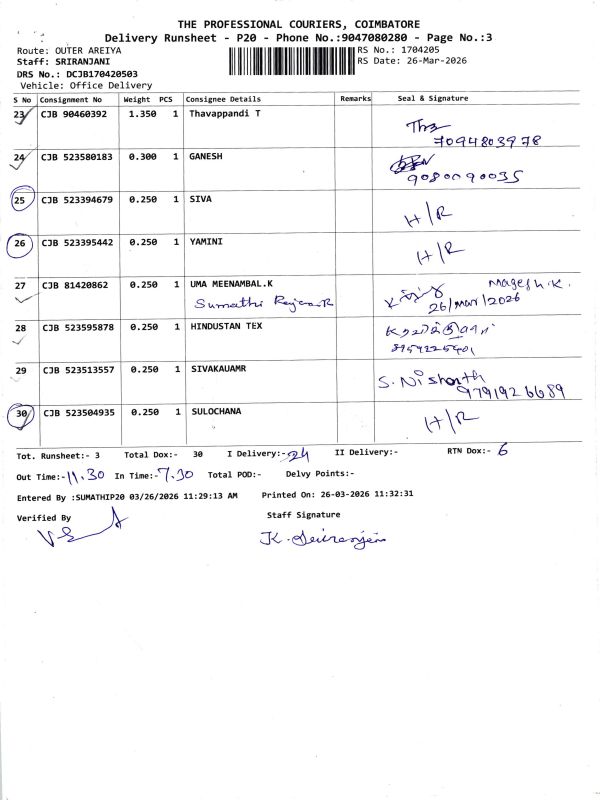 THE PROFESSIONAL COURIERS, COIMBATORE
Delivery Runsheet - P20 - Phone No.:9047080280 - Page No.:3
Route: OUTER AREIYA RS No.: 1704205
Staff: SRIRANJANI RS Date: 26-Mar-2026
DRS No.: DCJB170420503
Vehicle: Office Delivery
S No Consignment No Weight PCS Consignee Details Remarks Seal & Signature
23 CJB 90460392 1.350 1 Thavappandi T
7094803978
24 CJB 523580183 0.300 1 GANESH
9080090035
25 CJB 523394679 0.250 1 SIVA H/R
26 CJB 523395442 0.250 1 YAMINI H/R
27 CJB 81420862 0.250 1 UMA MEENAMBAL.K Magesh.K.
Sumathi 26/Mar/2026
28 CJB 523595878 0.250 1 HINDUSTAN TEX
29 CJB 523513557 0.250 1 SIVAKAUAMR S. Nishanth
9791926689
30 CJB 523504935 0.250 1 SULOCHANA H/R
Tot. Runsheet:- 3 Total Dox:- 30 I Delivery:- 24 II Delivery:- RTN Dox:- 6
Out Time:- 11.30 In Time:- 7.30 Total POD:- Delvy Points:-
Entered By :SUMATHIP20 03/26/2026 11:29:13 AM Printed On: 26-03-2026 11:32:31
Verified By Staff Signature